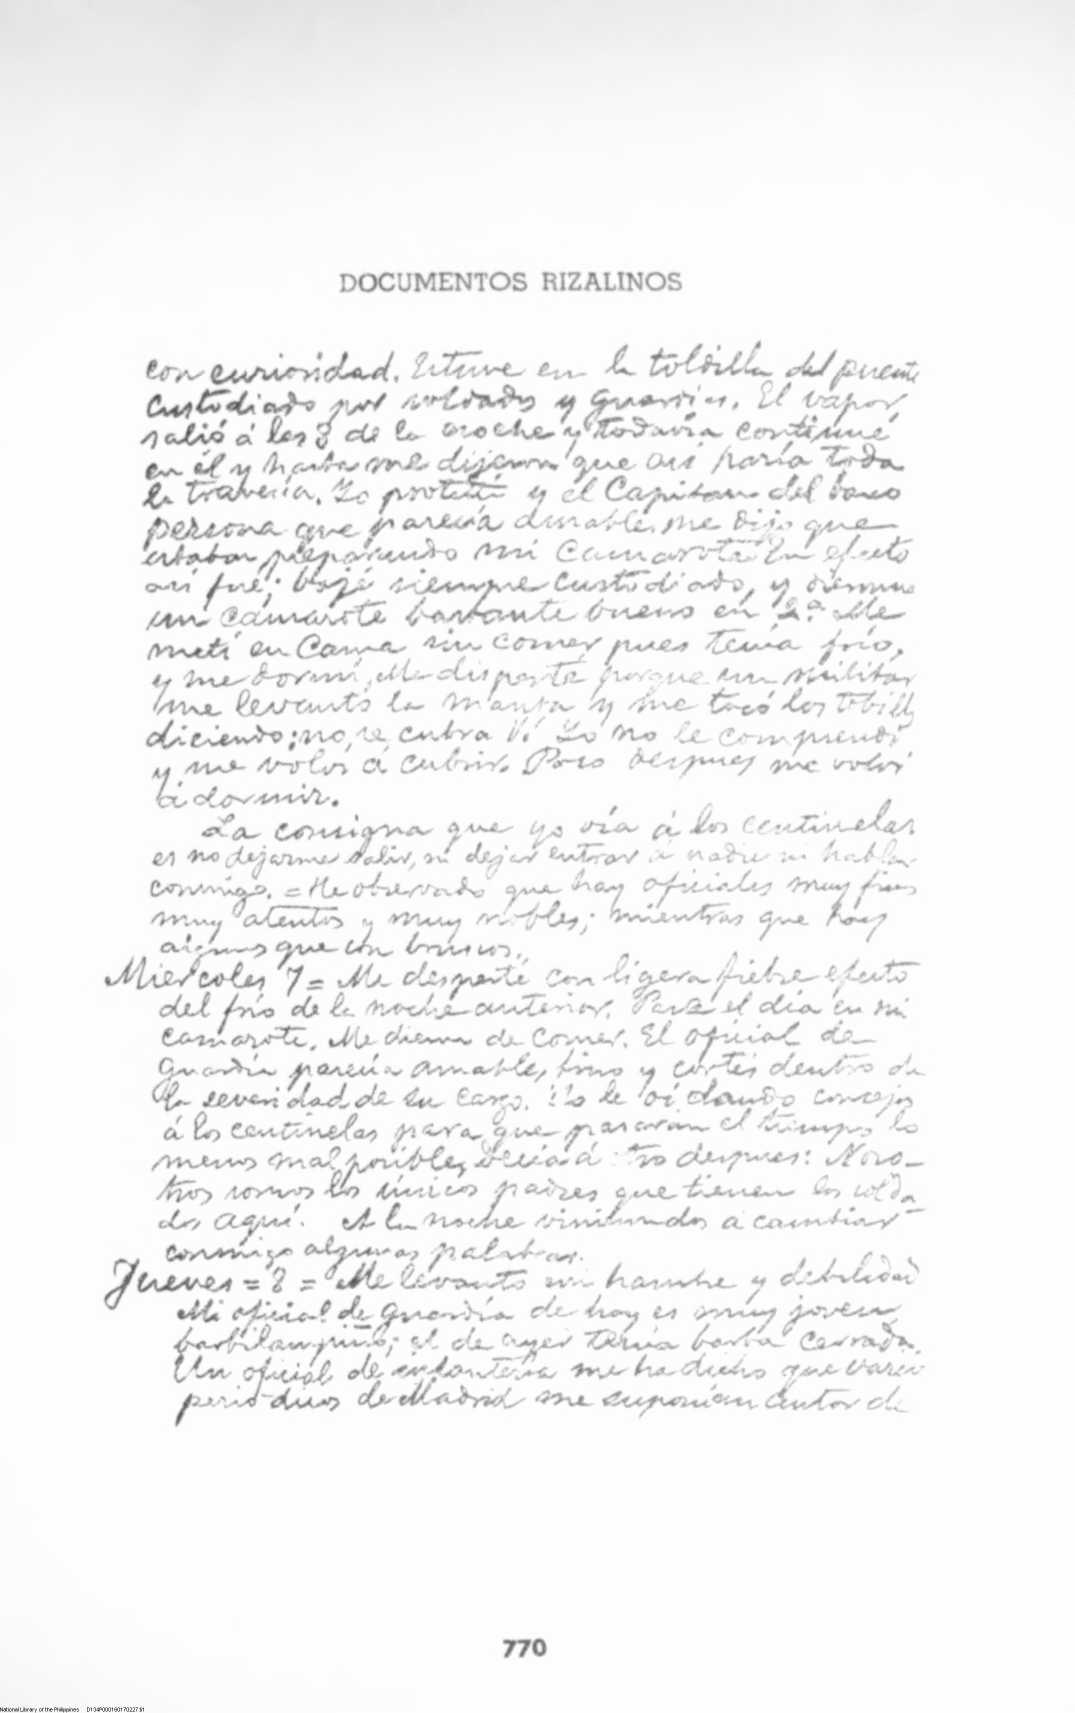 DOCUMENTOS RIZALINOS
con curiosidad. Estuve en la toldilla del puente
custodiado por soldados y guardias. El vapor
salió á las 8 de la noche y todavia continué
en él y hasta me dijeron que asi haría toda
la travesía. Yo protesté y el Capitan del barco
persona que parecía amable, me dijo que
estaban preparando mi camarote. En efecto
asi fué; bajé siempre custodiado, y
un camarote bastante bueno en 2.ª Me
metí en cama sin comer pues tenía frío,
y me dormí. Me desperté porque un militar
me levantó la manta y me tocó los tobillos
diciendo: no, se cubra V. Yo no le comprendí
y me volví á cubrir. Poco despues me volví
á dormir.
La consigna que yo oía á los centinelas
es no dejarme salir, ni dejar entrar á nadie ni hablar
conmigo. = He observado que hay oficiales muy finos
muy atentos y muy nobles; mientras que hay
algunos que son bruscos.
Miercoles 7 = Me desperté con ligera fiebre efecto
del frío de la noche anterior. Pasé el día en mi
camarote. Me dieron de comer. El oficial de
guardia parecía amable, fino y cortés dentro de
la severidad de su cargo. Yo le oí dando consejos
á los centinelas para que pasaran el tiempo lo
menos mal posible, decía á otro despues: Noso-
tros somos los únicos padres que tienen los solda
dos aquí. A la noche vinieron dos á cambiar
conmigo algunas palabras.
Jueves = 8 = Me levanto sin hambre y debilidad
Mi oficial de guardia de hoy es muy joven
barbilampiño; el de ayer tenía barba cerrada.
Un oficial de infantería me ha dicho que varios
periódicos de Madrid me suponían autor de
770
National Library of the Philippines D134P000160170227.tif